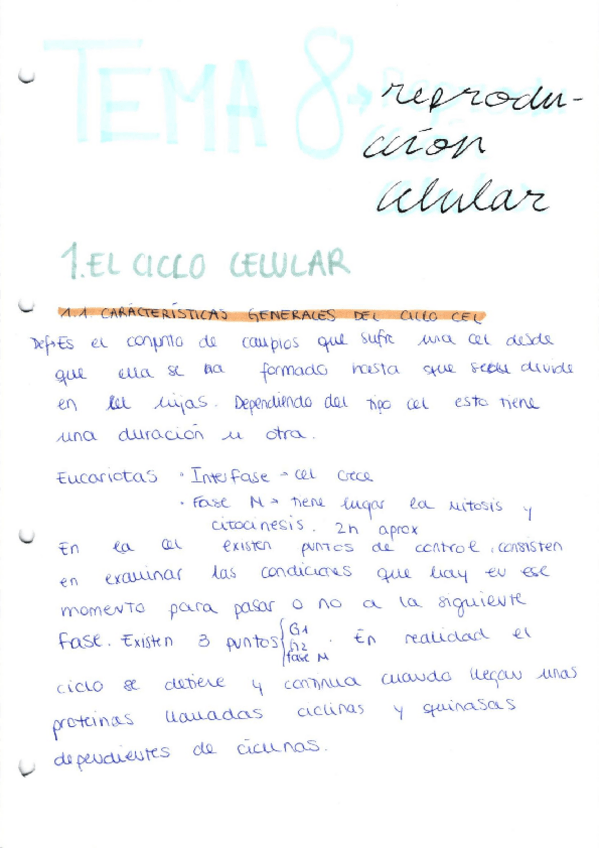 TEMA 8 → reprodu-
cción
celular
1. EL CICLO CELULAR
1.1 CARÁCTERÍSTICAS GENERALES DEL CICLO CEL
Def→Es el conjunto de cambios que sufre una cel desde
que ella se ha formado hasta que se divide
en cel hijas. Dependiendo del tipo cel esto tiene
una duración u otra.
Eucariotas · Interfase → cel crece
· Fase M → tiene lugar la mitosis y
citocinesis. 2h aprox
En la cel existen puntos de control, consisten
en examinar las condiciones que hay en ese
momento para pasar o no a la siguiente
fase. Existen 3 puntos { G1
G2
fase M . En realidad el
ciclo se detiene y continua cuando llegan unas
proteínas llamadas ciclinas y quinasas
dependientes de ciclinas.